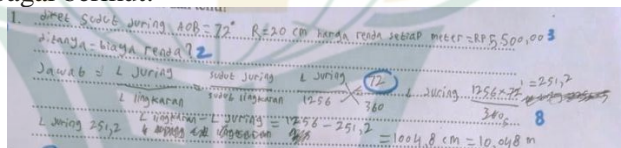 1. diket sudut Juring AOB = 72° R = 20 cm harga renda setiap meter = RP 5,500,00 3
ditanya = biaya renda? 2
Jawab = L Juring / L lingkaran = sudut Juring / sudut lingkaran L Juring / 1256 = 72 / 360 L Juring 1256 x 72 / 360 = 251,2
8
L Juring 251,2 L lingkaran - L Juring = 1256 - 251,2
= 1004,8 cm = 10,048 m